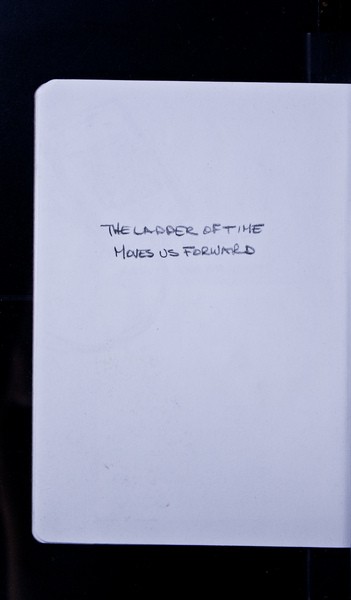 THE LADDER OF TIME
MOVES US FORWARD